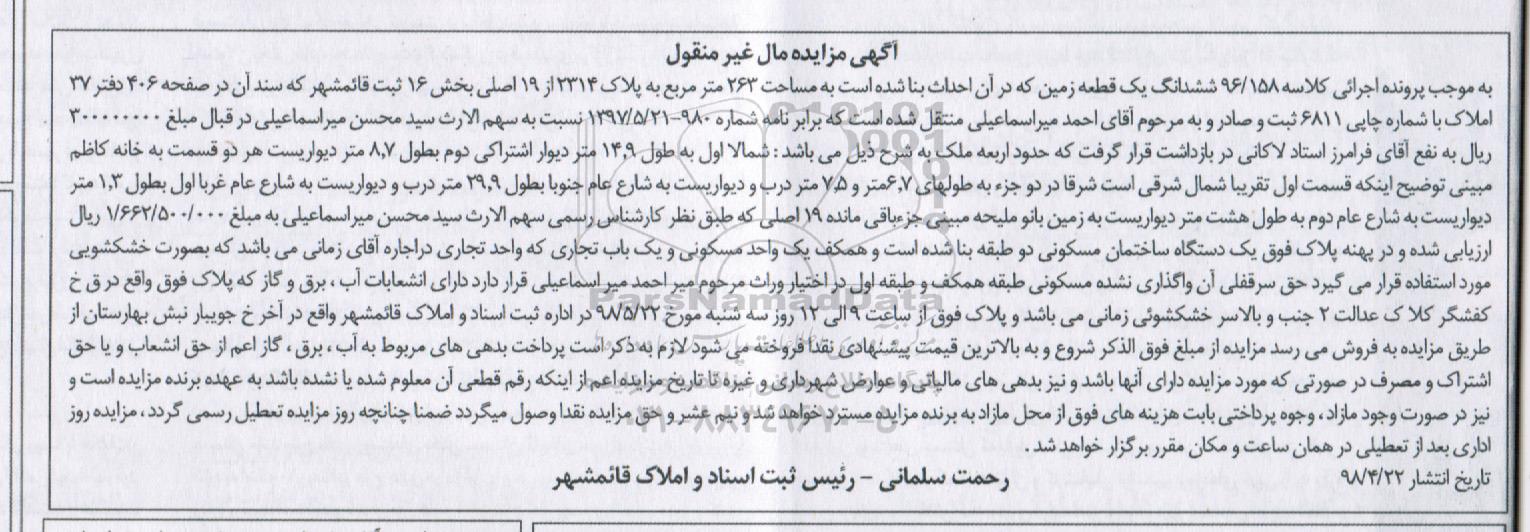 آگهی مزایده مال غیر منقول
به موجب پرونده اجرائی کلاسه ۹۶/۱۵۸ ششدانگ یک قطعه زمین که در آن احداث بنا شده است به مساحت ۲۶۳ متر مربع به پلاک ۲۳۱۴ از ۱۹ اصلی بخش ۱۶ ثبت قائمشهر که سند آن در صفحه ۴۰۶ دفتر ۳۷
املاک با شماره چاپی ۶۸۱۱ ثبت و صادر و به مرحوم آقای احمد میراسماعیلی منتقل شده است که برابر نامه شماره ۹۸۰-۱۳۹۷/۵/۲۱ نسبت به سهم الارث سید محسن میراسماعیلی در قبال مبلغ ۳۰۰۰۰۰۰۰۰۰
ریال به نفع آقای فرامرز استاد لاکانی در بازداشت قرار گرفت که حدود اربعه ملک به شرح ذیل می باشد : شمالا اول به طول ۱۴,۹ متر دیوار اشتراکی دوم بطول ۸,۷ متر دیواریست هر دو قسمت به خانه کاظم
مبینی توضیح اینکه قسمت اول تقریبا شمال شرقی است شرقا در دو جزء به طولهای ۶,۷متر و ۷,۵ متر درب و دیواریست به شارع عام جنوبا بطول ۲۹,۹ متر درب و دیواریست به شارع عام غربا اول بطول ۱,۳ متر
دیواریست به شارع عام دوم به طول هشت متر دیواریست به زمین بانو ملیحه مبینی جزءباقی مانده ۱۹ اصلی که طبق نظر کارشناس رسمی سهم الارث سید محسن میراسماعیلی به مبلغ ۱/۶۶۲/۵۰۰/۰۰۰ ریال
ارزیابی شده و در پهنه پلاک فوق یک دستگاه ساختمان مسکونی دو طبقه بنا شده است و همکف یک واحد مسکونی و یک باب تجاری که واحد تجاری دراجاره آقای زمانی می باشد که بصورت خشکشویی
مورد استفاده قرار می گیرد حق سرقفلی آن واگذاری نشده مسکونی طبقه همکف و طبقه اول در اختیار وراث مرحوم میر احمد میر اسماعیلی قرار دارد دارای انشعابات آب ، برق و گاز که پلاک فوق واقع در ق خ
کفشگر کلا ک عدالت ۲ جنب و بالاسر خشکشوئی زمانی می باشد و پلاک فوق از ساعت ۹ الی ۱۲ روز سه شنبه مورخ ۹۸/۵/۲۲ در اداره ثبت اسناد و املاک قائمشهر واقع در آخر خ جویبار نبش بهارستان از
طریق مزایده به فروش می رسد مزایده از مبلغ فوق الذکر شروع و به بالاترین قیمت پیشنهادی نقدا فروخته می شود لازم به ذکر است پرداخت بدهی های مربوط به آب ، برق ، گاز اعم از حق انشعاب و یا حق
اشتراک و مصرف در صورتی که مورد مزایده دارای آنها باشد و نیز بدهی های مالیاتی و عوارض شهرداری و غیره تا تاریخ مزایده اعم از اینکه رقم قطعی آن معلوم شده یا نشده باشد به عهده برنده مزایده است و
نیز در صورت وجود مازاد ، وجوه پرداختی بابت هزینه های فوق از محل مازاد به برنده مزایده مسترد خواهد شد و نیم عشر و حق مزایده نقدا وصول میگردد ضمنا چنانچه روز مزایده تعطیل رسمی گردد ، مزایده روز
اداری بعد از تعطیلی در همان ساعت و مکان مقرر برگزار خواهد شد .
تاریخ انتشار ۹۸/۴/۲۲
رحمت سلمانی – رئیس ثبت اسناد و املاک قائمشهر
ParsNamadData
۰۲۱-۸۸۳۴۹۶۷۰-۵